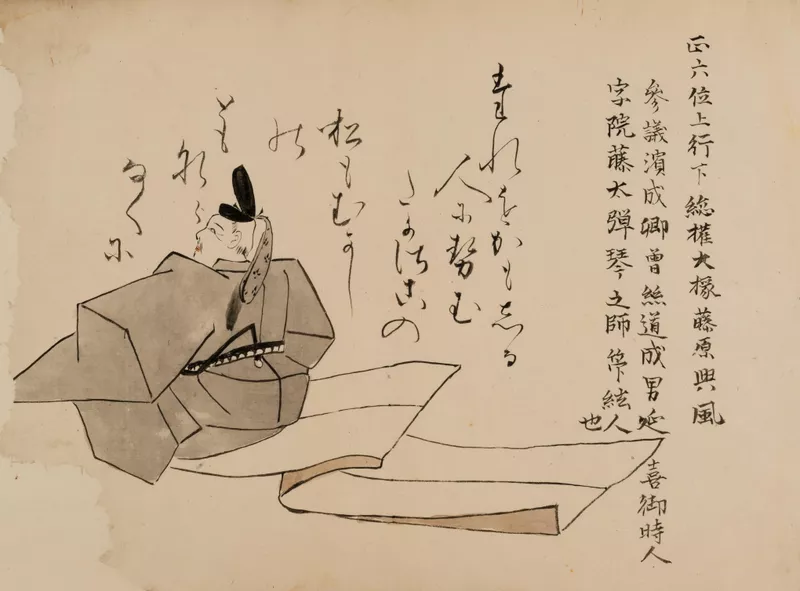 正六位上行下総權大掾藤原興風
參議濱成卿曾孫道成男延喜御時人
字院藤太弾琴之師管絃人也
たれをかも志る
人尓勢む
たかさこの
松もむかし
の
とも
なら
なく尓